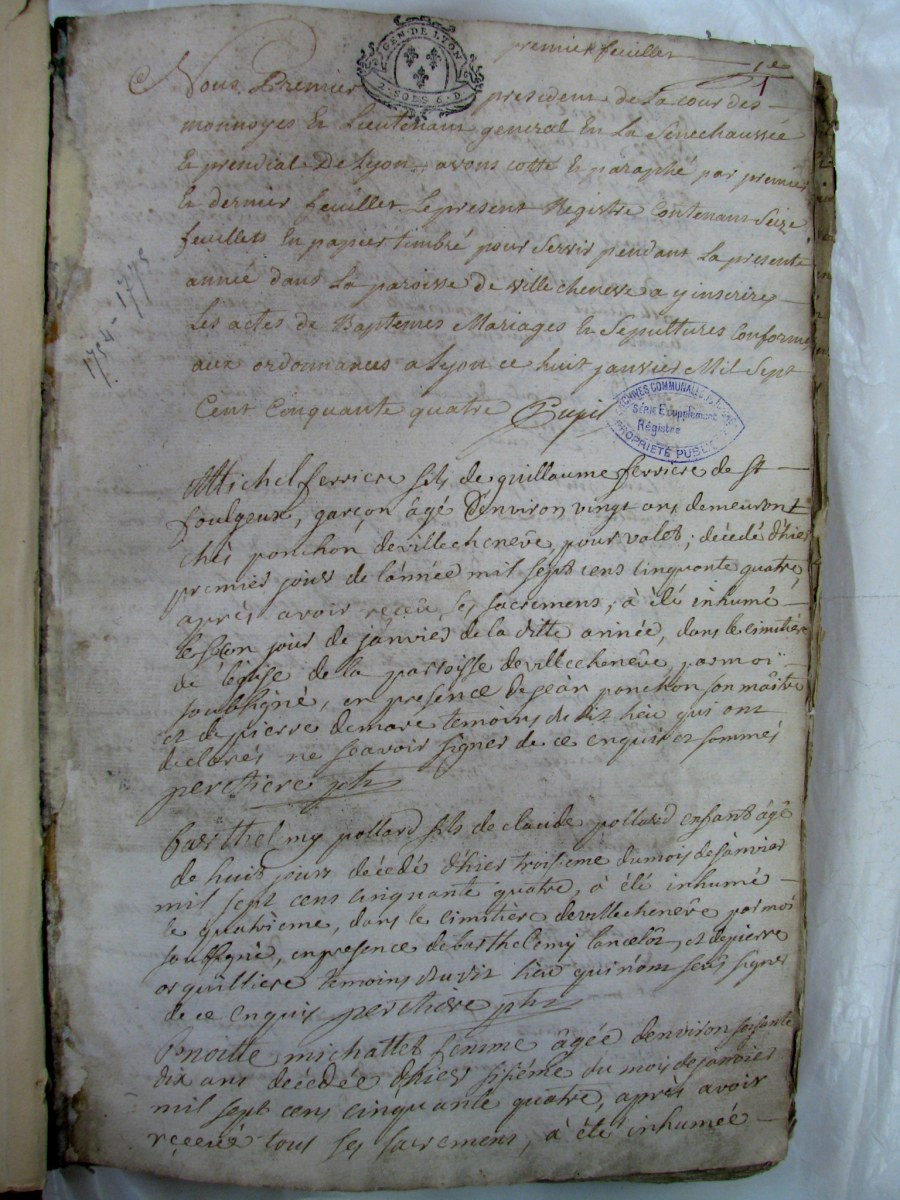 premier feuillet 1er
1
GEN. DE LYON
2. SOLS 6. D
Nous Premier president de La cour des
monnoyes Et Lieutenant general En La Senechaussée
Et presidial De Lyon avons cotté Et paraphé par premier
Et dernier feuillet Le present Registre Contenant Seize
feuillets En papier timbré pour Servir pendant La presente
année dans La paroisse de villecheneve a y inscrire
Les actes de Baptemes Mariages Et Sepultures Conforme
aux ordonnances a Lyon ce huit janvier Mil Sept
Cent Cinquante quatre Pupil
1754-1775
ARCHIVES COMMUNALES
Série E supplément
Régistre
PROPRIETE PUBLIQUE
Michel ferriere fils de guillaume ferriere de st
foulgeux, garçon âgé d'environ vingt ans, demeurant
chés ponchon de villechenêve, pour valet; décedé d'hier
premier jour de l'année mil sept cens cinquante quatre,
aprés avoir reçeu ses sacremens, à été inhumé
le jour de janvier de la ditte année, dans le cimitiére
de l'église de la parroisse de villechenêve, par moi
soubsigné, en présence de jean ponchon son maître
et de pierre demare temoins du dit lieu qui ont
declarés ne scavoir signer de ce enquis et sommés
perctiere
barthelemy pollard, fils de claude pollard enfant âgé
de huit jours décedé d'hier troisieme du mois de janvier
mil sept cens cinquante quatre, à été inhumé
le quatrieme, dans le cimitiére de villechenêve par moi
soussigné, en presence de barthelemy lancelot, et de pierre
orquilliere temoins du dit lieu qui n'ont sceu signer
de ce enquis perctiere
benoitte michallet femme âgée d'environ soisante
dix ans decedée d'hier sisiéme du mois de janvier
mil sept cens cinquante quatre, aprés avoir
reçeue tous ses sacremens, à été inhumée